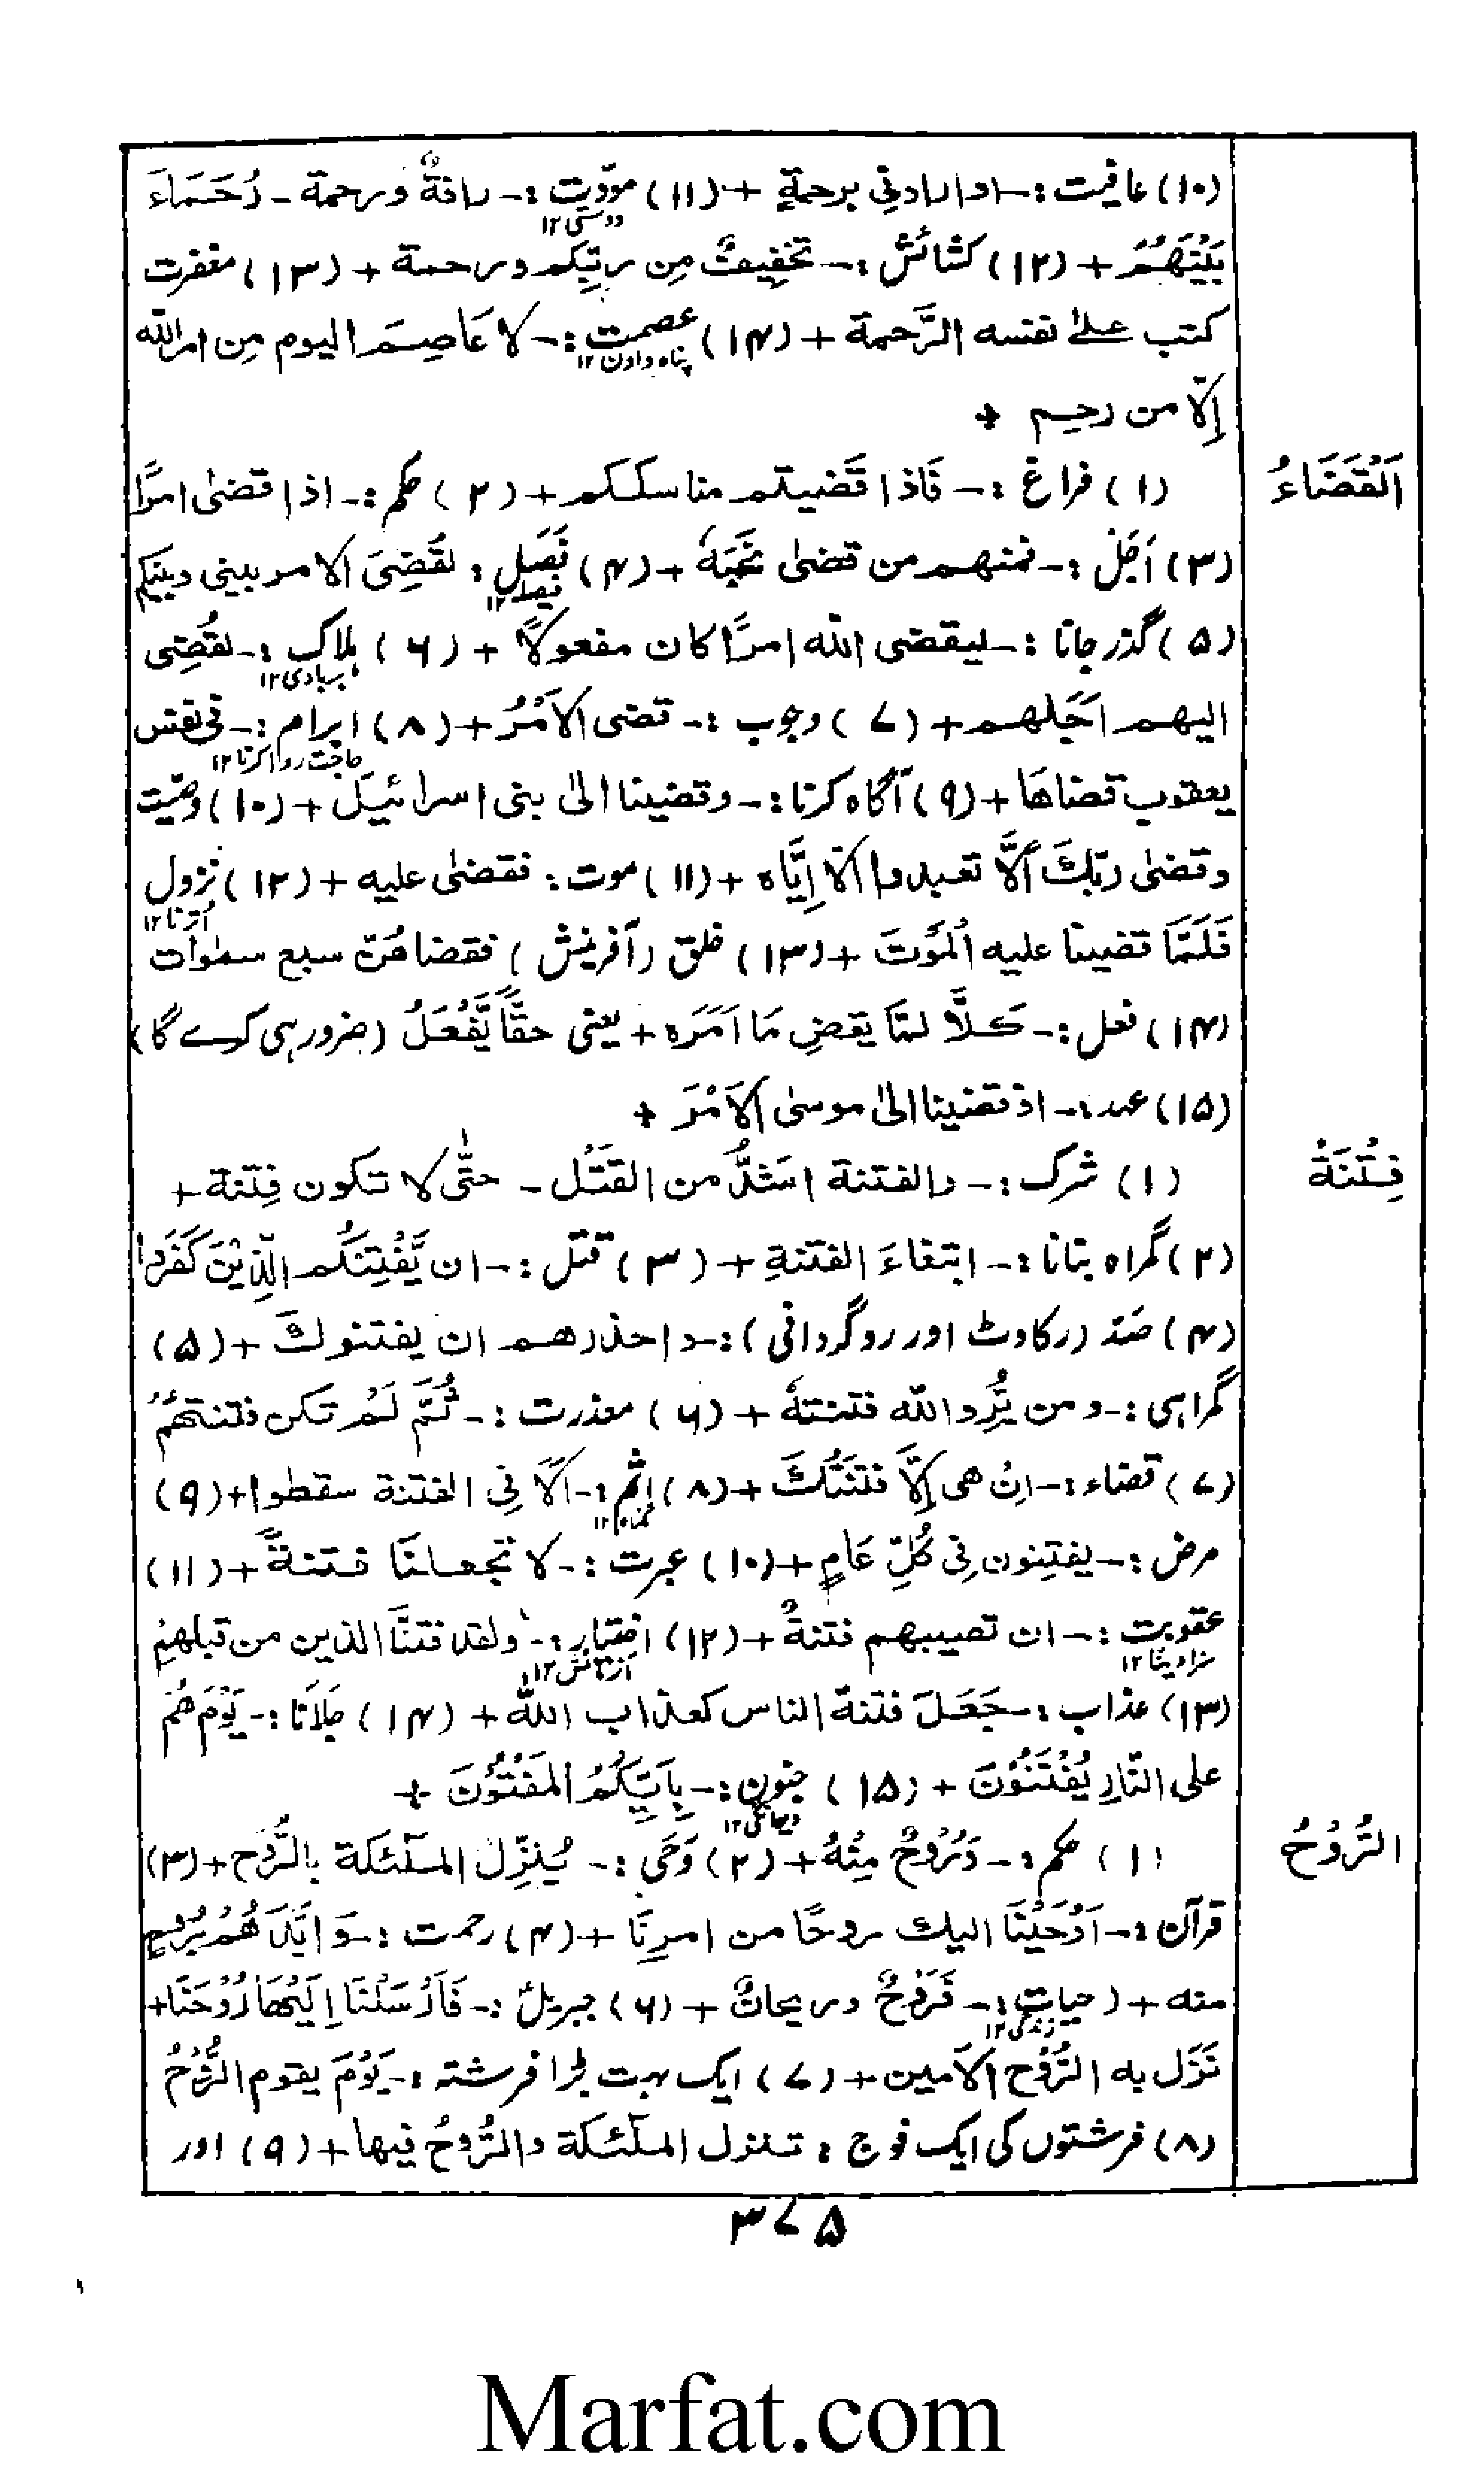 (۱۰) عافیت :- او ارادنی برحمةٍ + (۱۱) مودّت :- رافةٌ ورحمة - رُحَمَاءَ
دوستی ۱۲
بَیْنَهُمْ + (۱۲) کشائش :- تخفیفٌ مِن ربِّکم ورحمة + (۱۳) مغفرت
کتب علیٰ نفسه الرَّحمة + (۱۴) عصمت :- لا عَاصِمَ الیوم مِن امرالله
پناہ دادن ۱۲
إلّا من رحِم +
اَلْقَضَاءُ
(۱) فراغ :- فَاذا قَضیتم مناسککم + (۲) حکم :- اذا قضیٰ امرًا
(۳) اَجَل :- فمنهم من قضیٰ نَحْبَهٗ + (۴) فَصَل : لقُضِیَ الامر بینی وبینکم
فیصلہ ۱۲
(۵) گذر جانا :- لیقضی الله امرًا کان مفعولًا + (۶) ہلاک :- لقُضِی
بربادی ۱۲
الیهم اَجَلهم + (۷) وجوب :- قضی الاَمْرُ + (۸) ابرام :- فی نفس
حاجت روا کرنا ۱۲
یعقوب قضاهَا + (۹) آگاہ کرنا :- وقضینا الیٰ بنی اسرائیل + (۱۰) وصیّت
وقضیٰ ربّكَ اَلَّا تعبدوا الّا إیَّاه + (۱۱) موت : فقضیٰ علیه + (۱۲) نزول
اُترنا ۱۲
فَلَمَّا قضینا علیه الْمَوْتَ + (۱۳) خلق (آفرینش) فقضاهُنّ سبع سمٰوات
(۱۴) فعل :- کَلَّا لمّا یقضِ مَا اَمَرَہ + یعنی حقًّا یَّفْعَلُ (ضرور ہی کرے گا)
(۱۵) عہد :- اذ قضینا الیٰ موسیٰ الاَمْرَ +
فِتْنَةْ
(۱) شرک :- والفتنة اشدُّ من القتل - حتّٰی لا تکون فِتنة +
(۲) گمراہ بنانا :- ابتغاءَ الفتنةِ + (۳) قتل :- ان یَّفْتِنَکُم الَّذِیْنَ کَفَرُوا
(۴) صَدّ (رکاوٹ اور روگردانی) :- واحذرهم ان یفتنوكَ + (۵)
گمراہی :- ومن یُّرِد الله فتنتهٗ + (۶) معذرت :- ثُمَّ لَمْ تکن فتنتهُمْ
(۷) قضاء :- اِنْ هی اِلَّا فتنَتُكَ + (۸) إثم :- اَلَا فِی الفتنة سقطوا + (۹)
گناہ ۱۲
مرض :- یفتِنون فی کُلِّ عَامٍ + (۱۰) عبرت :- لا تجعلنَا فتنةً + (۱۱)
عقوبت :- ان تصیبهم فتنةٌ + (۱۲) اختبار :- ولقد فتنَّا الذین من قبلهِم
سزا دینا ۱۲ آزمائش ۱۲
(۱۳) عذاب :- جَعَلَ فتنة الناس کعذاب اللّٰه + (۱۴) جَلَانا :- یَوْمَ هُم
علی النَّارِ یُفْتَنُوْنَ + (۱۵) جنون :- بِاَیِّکُمُ المَفْتُوْنَ +
دیوانگی ۱۲
الرُّوْحُ
(۱) حکم :- وَرُوْحٌ مِنْهُ + (۲) وَحَی :- یُنَزِّل الملٰٓئکة بالرُّوْح + (۳)
قرآن :- اَوْحَیْنَا الیك روحًا من امرِنَا + (۴) رحمت :- وَاَیَّدَهُمْ بِرُوْحٍ
منه + (حیات :- فَرَوْحٌ وریحانٌ + (۶) جبریل :- فَاَرْسَلْنَا اِلَیْهَا رُوْحَنَا +
زندگی ۱۲
نَزَل به الرُّوْح الاَمین + (۷) ایک بہت بڑا فرشتہ :- یَوْمَ یقوم الرُّوْحُ
(۸) فرشتوں کی ایک فوج : تنزل الملٰٓئکة والرُّوحُ فیها + (۹) اور
۳۷۵
Marfat.com